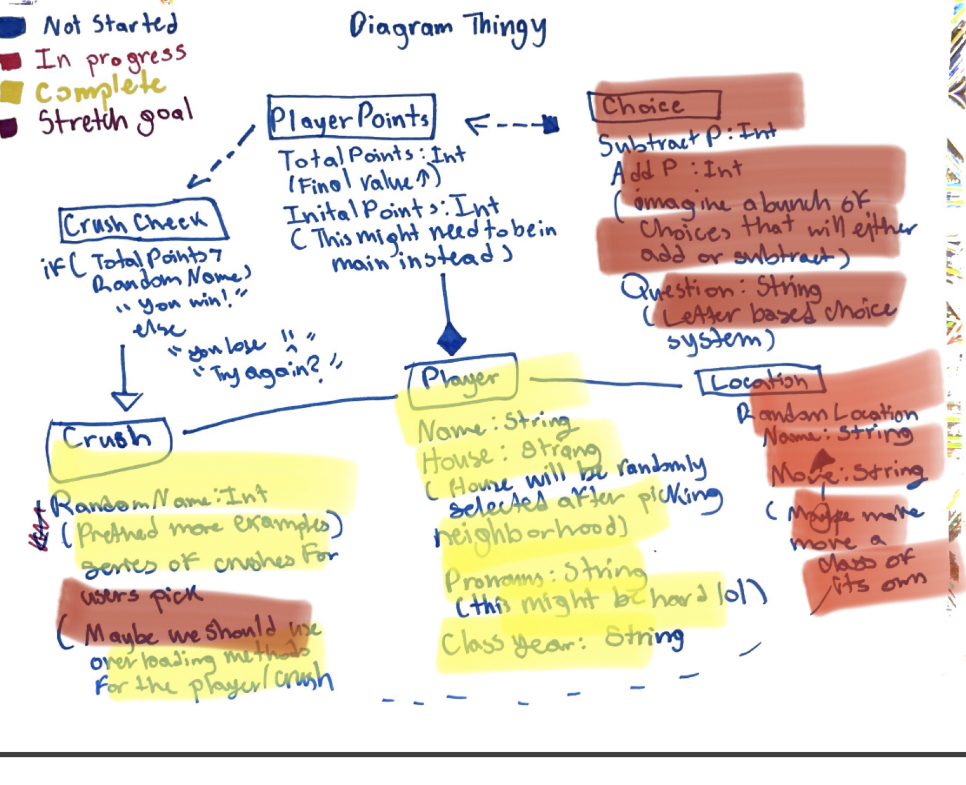 Not Started
In progress
Complete
Stretch goal
Diagram Thingy
Player Points
Total Points: Int
(Final value ↑)
Inital Points: Int
(This might need to be in
main instead)
Choice
Subtract P: Int
Add P : Int
( imagine a bunch of
choices that will either
add or subtract)
Question: String
(Letter based choice
system)
Crush Check
if( Total Points >
Random Name)
"You win!"
else
"you lose !!"
"Try again?"
Crush
Random Name: Int
(more examples)
series of crushes For
users pick
( Maybe we should use
overloading methods
For the player/crush
Player
Name: String
House: Strang
( House will be randomly
selected after picking
neighborhood)
Pronouns: String
(this might be hard lol)
Class year: String
Location
Random Location
Name: String
Move: String
( Maybe make
move a
class of
its own